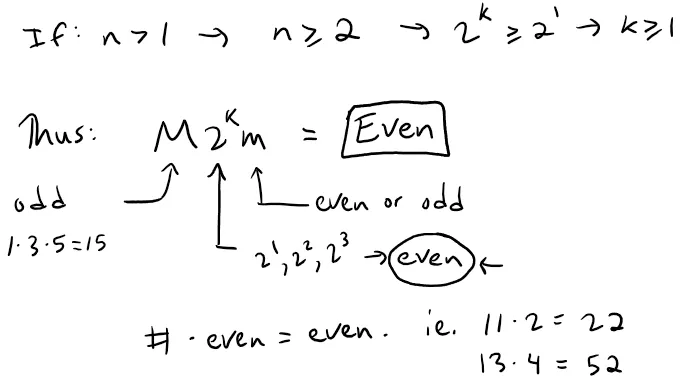 If: n > 1 → n ≥ 2 → 2^k ≥ 2^1 → k ≥ 1
Thus: M 2^k m = Even
odd
even or odd
1·3·5=15
2^1, 2^2, 2^3 → even ←
# · even = even. ie. 11·2 = 22
13·4 = 52